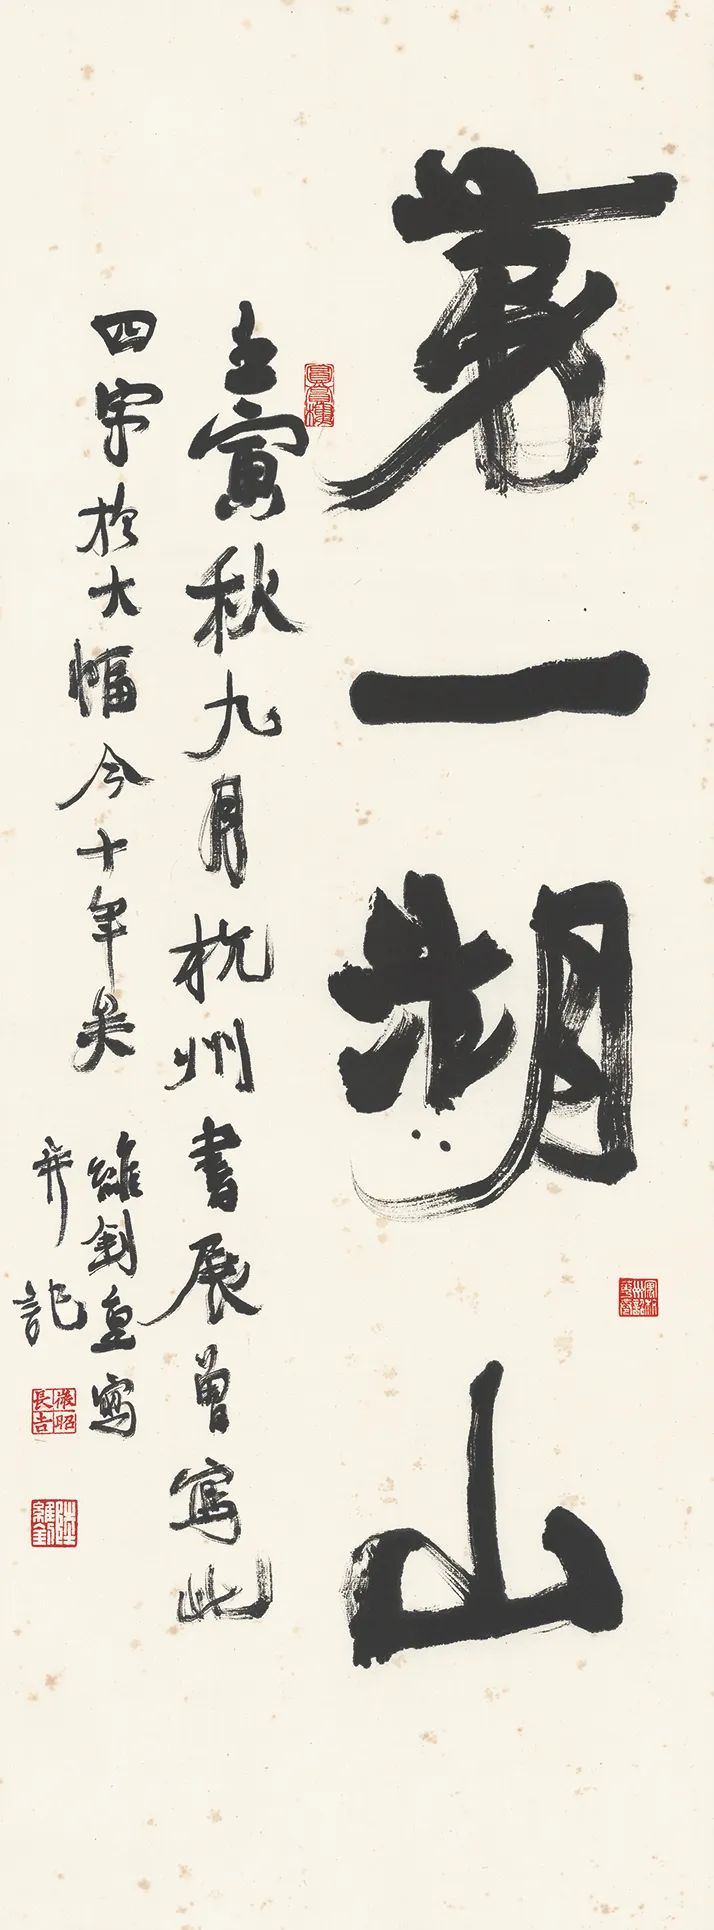 第一湖山
壬寅秋九月杭州書展曾寫此
四字於大幅今十年矣
維釗重寫
并記
陸
維釗